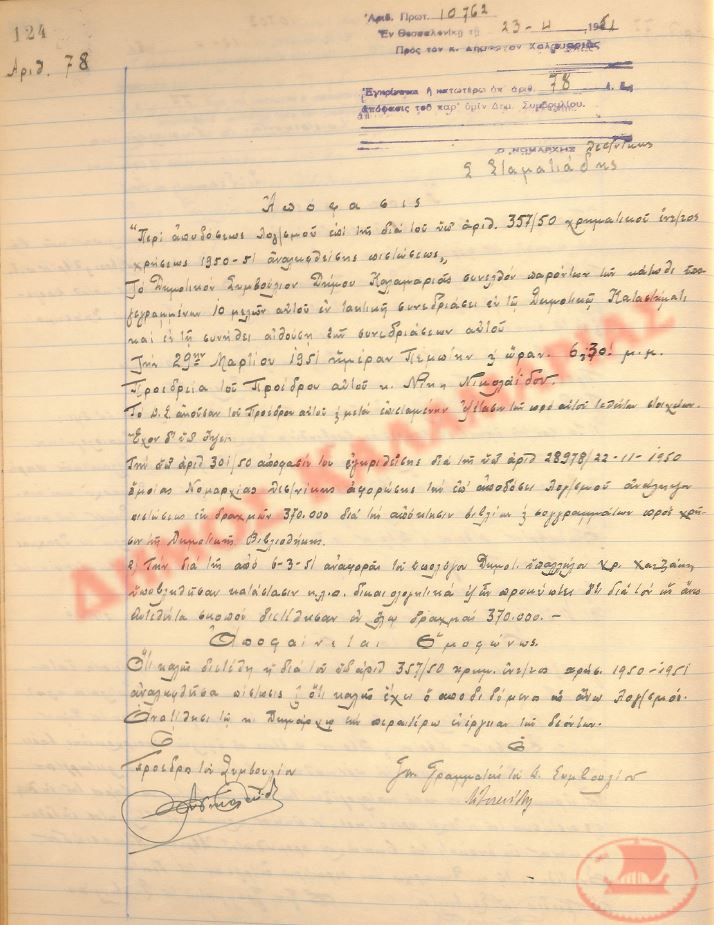 124
Αριθ. 78
Ἀριθ. Πρωτ. 10762
Ἐν Θεσσαλονίκῃ τῇ 23-4-1951
Πρὸς τὸν κ. Δήμαρχον Καλαμαριᾶς
Ἐγκρίνεται ἡ κατωτέρω ὑπ' ἀριθ. 78
ἀπόφασις τοῦ παρ' ὑμῖν Δημ. Συμβουλίου.
Ο ΝΟΜΑΡΧΗΣ Θεσ/νίκης
Σ Σταματιάδης
Ἀπόφασις
"Περὶ ἀποδόσεως λογ/σμοῦ ἐπὶ τῆς διὰ τοῦ ὑπ' ἀριθ. 357/50 χρηματικοῦ ἐντ/τος
χρήσεως 1950-51 ἀναληφθείσης πιστώσεως,,
Τὸ Δημοτικὸν Συμβούλιον Δήμου Καλαμαριᾶς συνελθὸν παρόντων τῶν κάτωθι ὑπο-
γεγραμμένων 10 μελῶν αὐτοῦ ἐν τακτικῇ συνεδριάσει ἐν τῷ Δημοτικῷ Καταστήματι
καὶ ἐν τῇ συνήθει αἰθούσῃ τῶν συνεδριάσεων αὐτοῦ
Τὴν 29ην Μαρτίου 1951 ἡμέραν Πέμπτην καὶ ὥραν 6,30' μ.μ.
Προεδρεία τοῦ Προέδρου αὐτοῦ κ. Νικολαΐδου.
Τὸ Δ.Σ. ἀκοῦσαν τοῦ Προέδρου αὐτοῦ καὶ μετὰ ἐξέτασιν τῶν πρὸ αὐτοῦ τεθέντων στοιχείων.
Ἔχον ὑπ' ὄψει
Τὴν ὑπ' ἀριθ 301/50 ἀπόφασίν του ἐγκριθείσης διὰ τῆς ὑπ' ἀριθ 28978/22-11-1950
ὁμοίας Νομαρχίας Θεσ/νίκης ἀφορώσης τὴν ἐπ' ἀποδόσει λογ/σμοῦ ἀνάληψιν
πιστώσεως ἐκ δραχμῶν 370.000 διὰ τὴν ἀπόκτησιν βιβλίων καὶ συγγραμμάτων πρὸς χρῆ-
σιν τῆς Δημοτικῆς Βιβλιοθήκης.
2) Τὴν διὰ τῆς ἀπὸ 6-3-51 ἀναφορᾶς τοῦ ὑπολόγου Δημοτ. ὑπαλλήλου Χρ. Χατζάκη
ὑποβληθεῖσαν κατάστασιν κ.λ.π. δικαιολογητικὰ ἐξ ὧν προκύπτει ὅτι διὰ τὸν ὡς ἄνω
σκοποῦ διετέθησαν ἐν ὅλῳ δραχμαὶ 370.000.-
Ἀποφαίνεται Ὁμοφώνως.
Ὅτι καλῶς διετέθη ἡ διὰ τοῦ ὑπ' ἀριθ 357/50 χρημ. ἐντ/τος χρήσ. 1950-1951
ἀναληφθεῖσα πίστωσις καὶ ὅτι καλῶς ἔχει ὁ ἀποδιδόμενος ὡς ἄνω λογ/σμός.
Ἀνατίθησι τῷ κ. Δημάρχῳ τὴν περαιτέρω ἐνέργειαν τῶν δεόντων.
Ὁ Ὁ
Πρόεδρος τοῦ Συμβουλίου Γεν. Γραμματεὺς τοῦ Δ. Συμβουλίου
ΔΗΜΟΣ ΚΑΛΑΜΑΡΙΑΣ